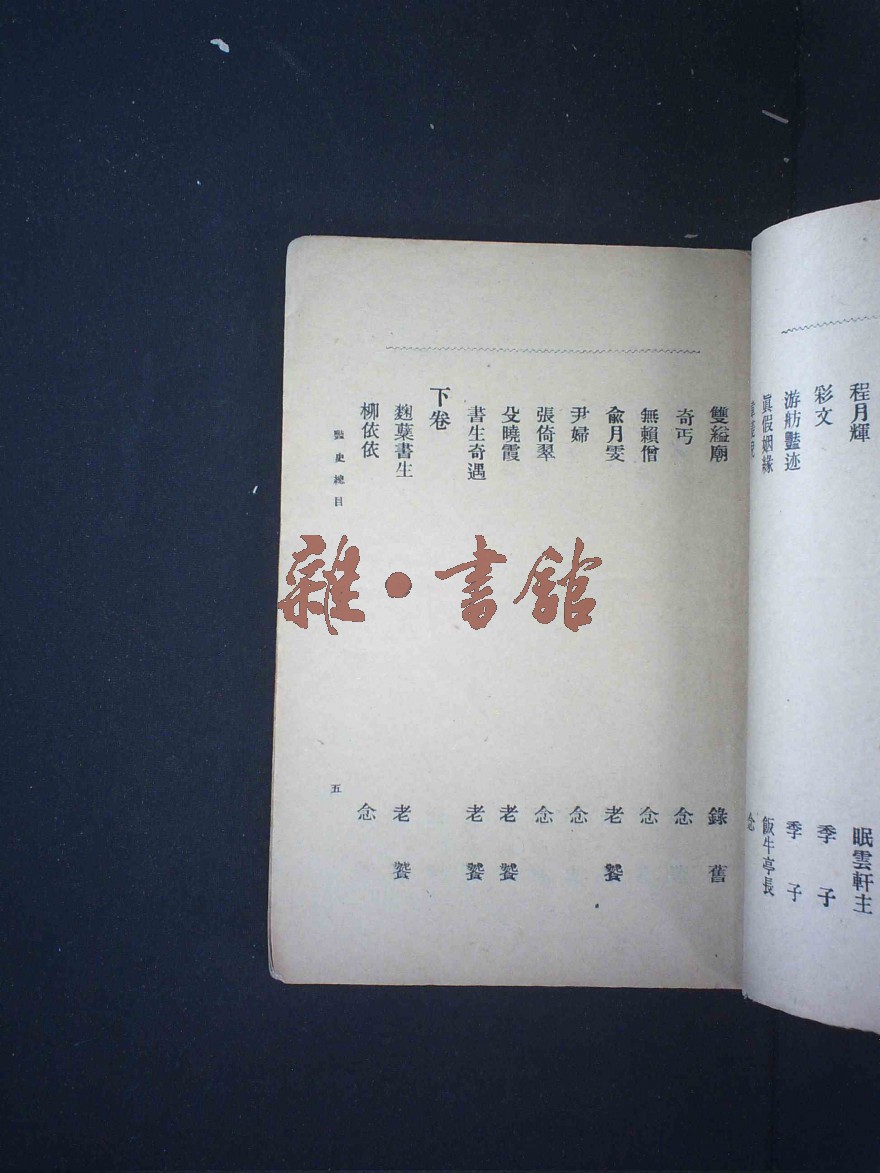 程月輝 眠雲軒主
彩文 季子
游舫豔迹 季子
眞假姻緣 飯牛亭長
念
雙縊廟 錄舊
奇丐 念
無賴僧 念
兪月雯 老饕
尹婦 念
張倚翠 念
殳曉霞 老饕
書生奇遇 老饕
下卷
麹蘖書生 老饕
柳依依 念
豔史總目 五
雜·書館